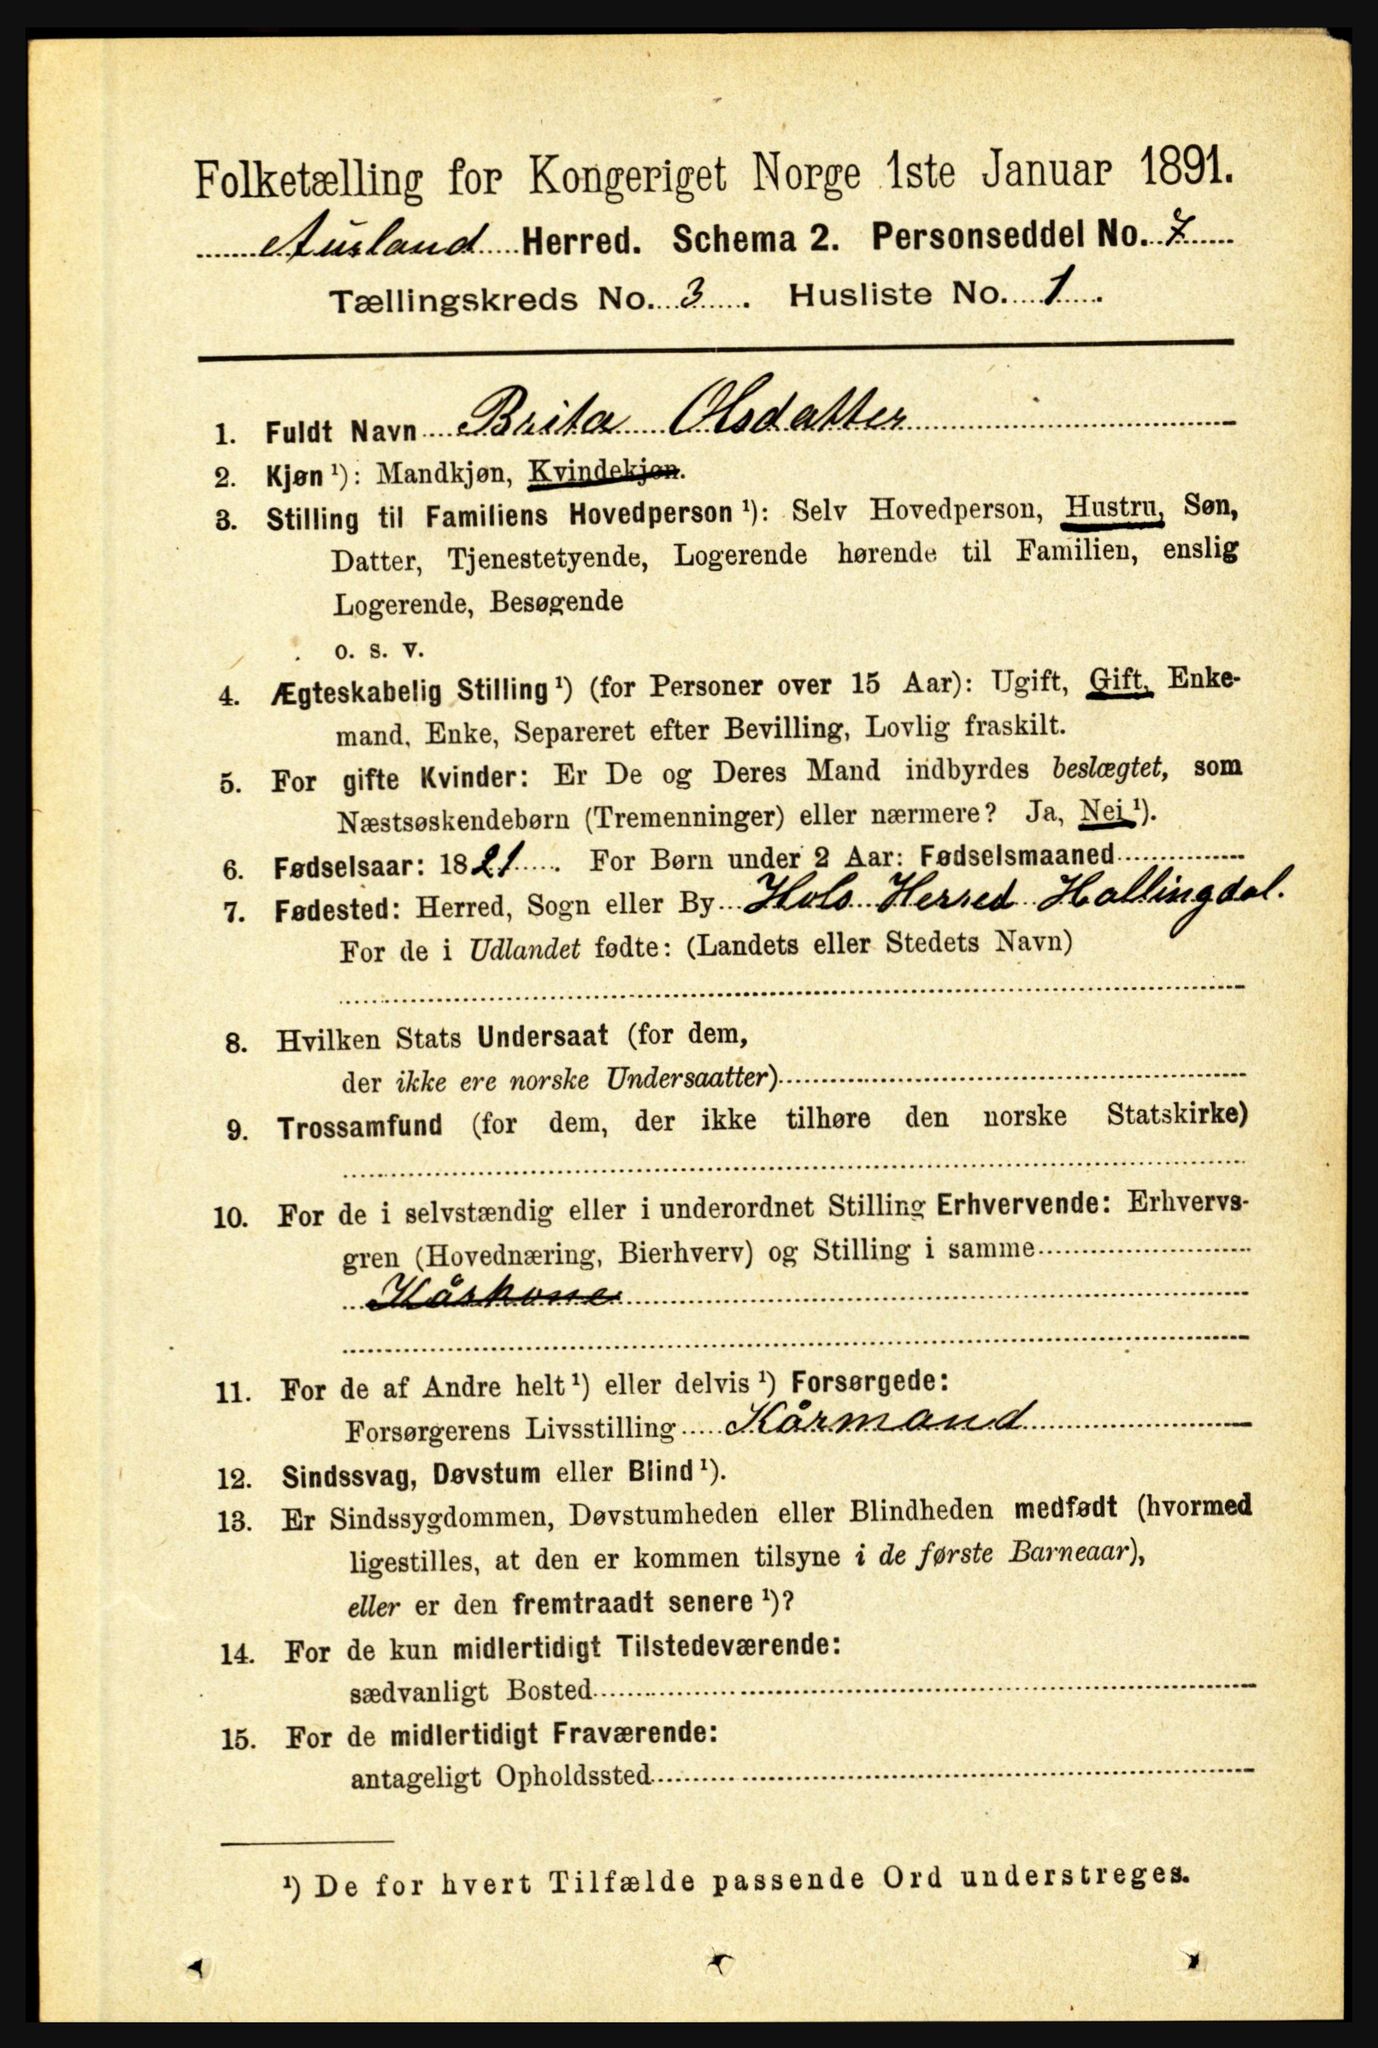 Folketælling for Kongeriget Norge 1ste Januar 1891.
Aurland Herred. Schema 2. Personseddel No. 7
Tællingskreds No. 3. Husliste No. 1.
1. Fuldt Navn Brita Olsdatter
2. Kjøn¹): Mandkjøn, Kvindekjøn.
3. Stilling til Familiens Hovedperson¹): Selv Hovedperson, Hustru, Søn,
Datter, Tjenestetyende, Logerende hørende til Familien, enslig
Logerende, Besøgende
o. s. v.
4. Ægteskabelig Stilling¹) (for Personer over 15 Aar): Ugift, Gift, Enke-
mand, Enke, Separeret efter Bevilling, Lovlig fraskilt.
5. For gifte Kvinder: Er De og Deres Mand indbyrdes beslægtet, som
Næstsøskendebørn (Tremenninger) eller nærmere? Ja, Nei¹).
6. Fødselsaar: 1821. For Børn under 2 Aar: Fødselsmaaned
7. Fødested: Herred, Sogn eller By Hols Herred Hallingdal.
For de i Udlandet fødte: (Landets eller Stedets Navn)
8. Hvilken Stats Undersaat (for dem,
der ikke ere norske Undersaatter)
9. Trossamfund (for dem, der ikke tilhøre den norske Statskirke)
10. For de i selvstændig eller i underordnet Stilling Erhvervende: Erhvervs-
gren (Hovednæring, Bierhverv) og Stilling i samme
Kårkone
11. For de af Andre helt¹) eller delvis¹) Forsørgede:
Forsørgerens Livsstilling Kårmand
12. Sindssvag, Døvstum eller Blind¹).
13. Er Sindssygdommen, Døvstumheden eller Blindheden medfødt (hvormed
ligestilles, at den er kommen tilsyne i de første Barneaar),
eller er den fremtraadt senere¹)?
14. For de kun midlertidigt Tilstedeværende:
sædvanligt Bosted
15. For de midlertidigt Fraværende:
antageligt Opholdssted
¹) De for hvert Tilfælde passende Ord understreges.